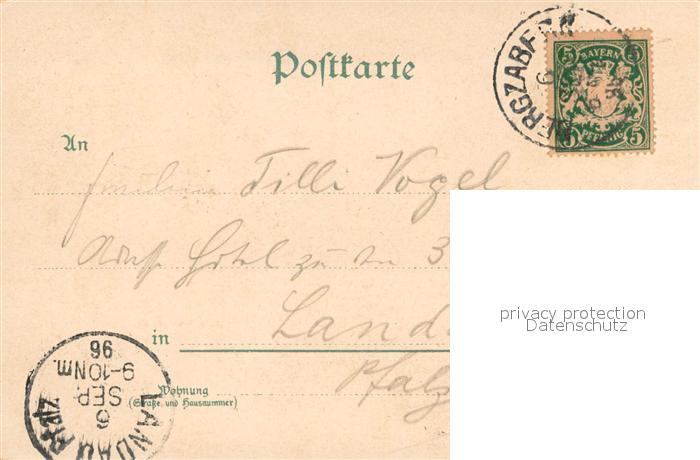 BERGZABERN
5 5
BAYERN
PFENNIG
5 5
Postkarte
An
Tilli Vogel
Hotel zu den 3
Land
in
Pfalz
Wohnung
(Straße und Hausnummer)
LANDAU PFALZ
6
SEP.
9-10 Nm.
96
privacy protection
Datenschutz